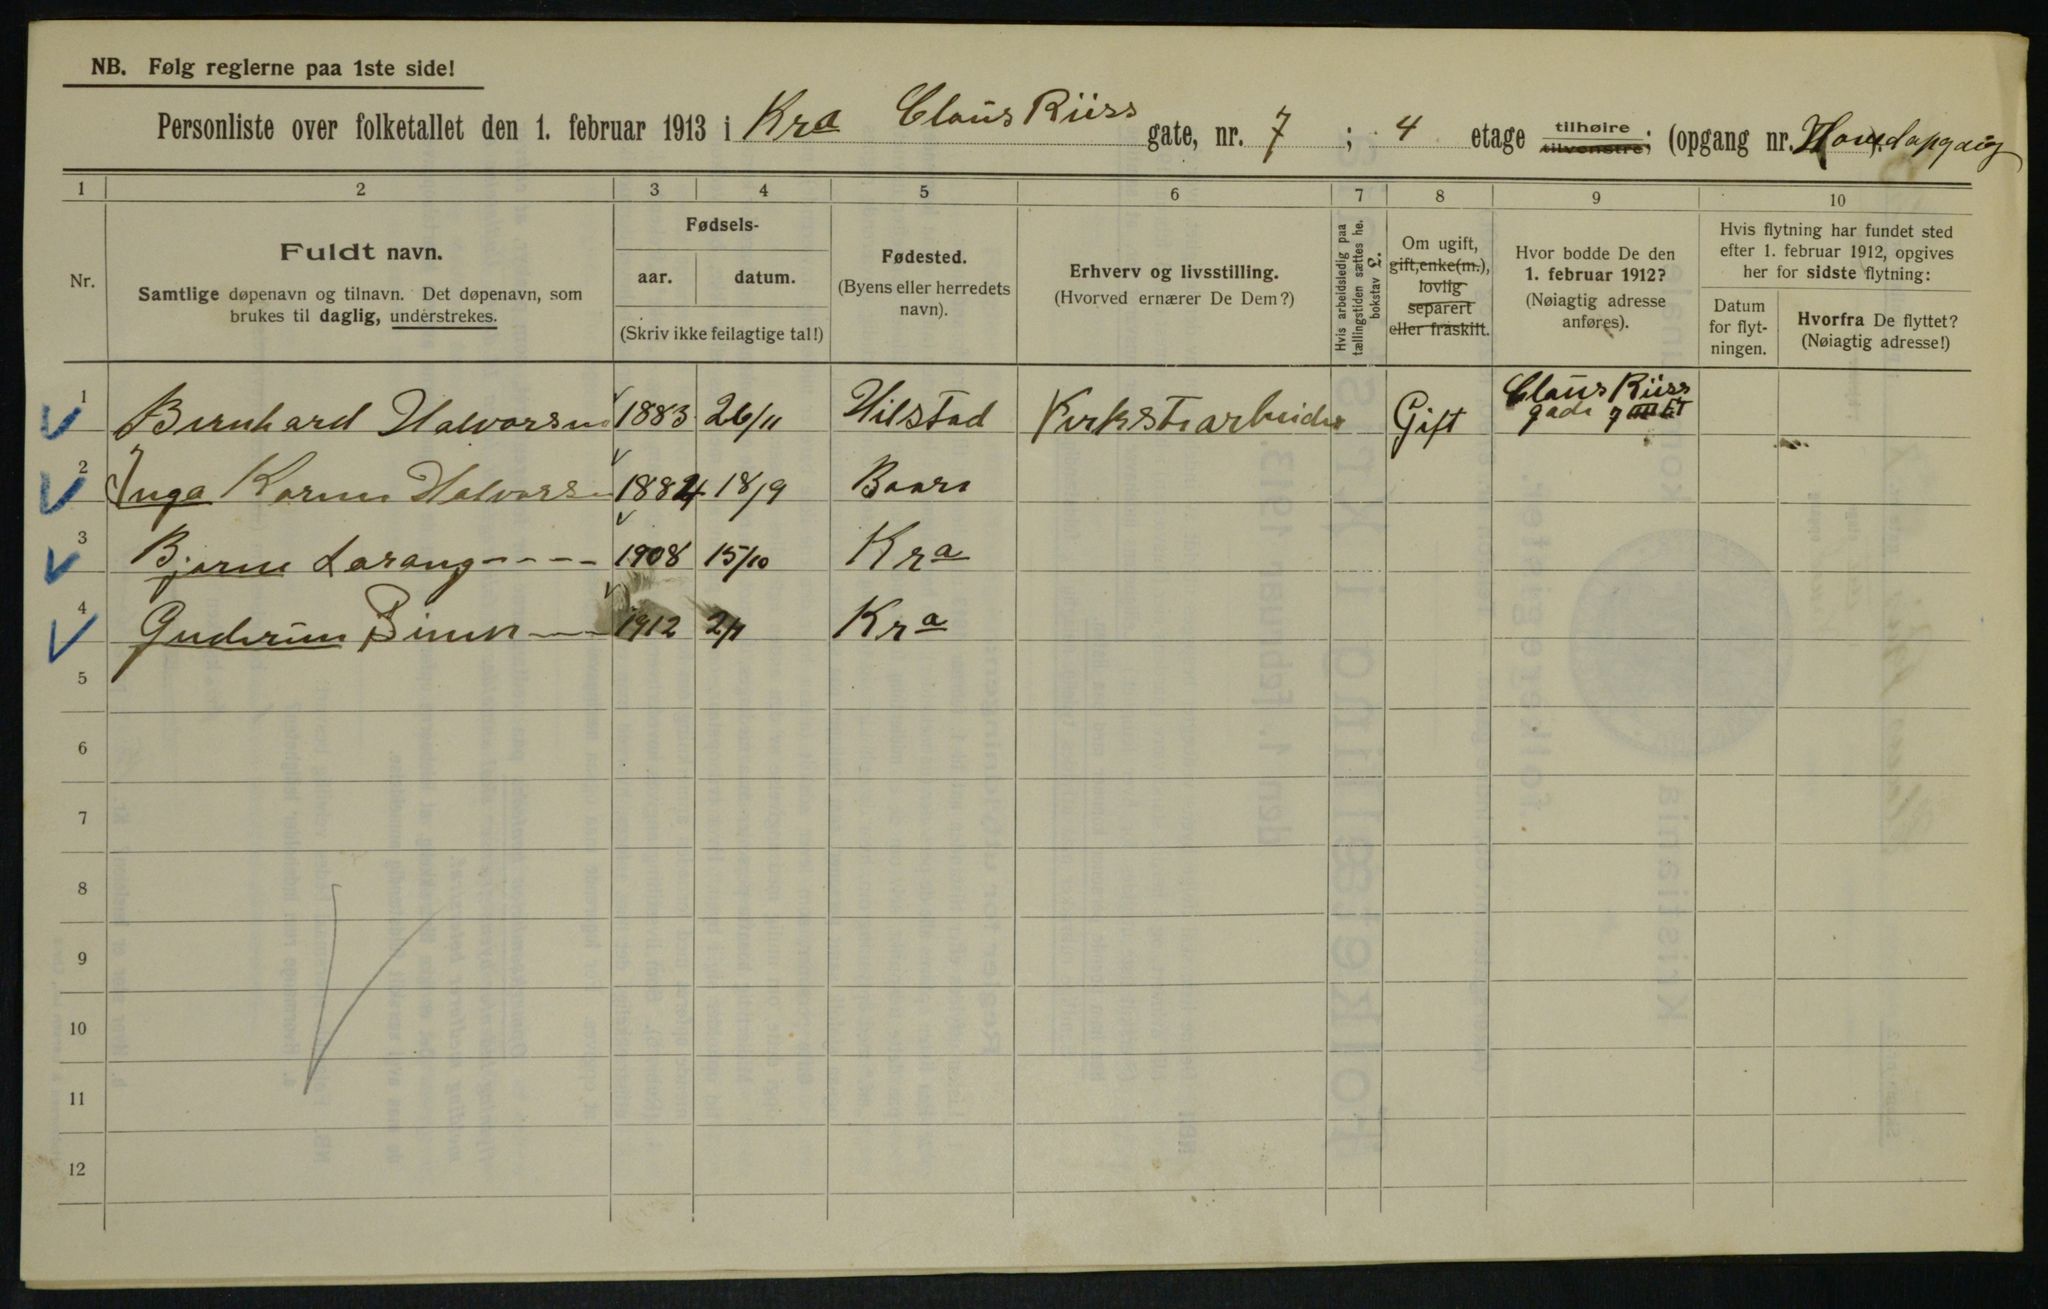 NB. Følg reglerne paa 1ste side!
Personliste over folketallet den 1. februar 1913 i Kra Claus Riiss gate, nr. 7 ; 4 etage tilhøire tilvenstre; (opgang nr.
1 2 3 4 5 6 7 8 9 10
Nr.
Fuldt navn.
Samtlige døpenavn og tilnavn. Det døpenavn, som
brukes til daglig, understrekes.
Fødsels-
aar. datum.
(Skriv ikke feilagtige tal!)
Fødested.
(Byens eller herredets
navn).
Erhverv og livsstilling.
(Hvorved ernærer De Dem?)
Hvis arbeidsledig paa
tællingstiden sættes he.
bokstav L.
Om ugift,
gift, enke(m.),
lovlig
separert
eller fraskilt.
Hvor bodde De den
1. februar 1912?
(Nøiagtig adresse
anføres).
Hvis flytning har fundet sted
efter 1. februar 1912, opgives
her for sidste flytning:
Datum
for flyt-
ningen.
Hvorfra De flyttet?
(Nøiagtig adresse!)
1 Bernhard Halvorsen 1883 26/11 Gift Claus Riiss
gade 7
2 Inga Karine Halvorsen 1884 18/9
3 Bjarne 1908 15/10 Kra
4 Gudrun 1912 Kra
5
6
7
8
9
10
11
12